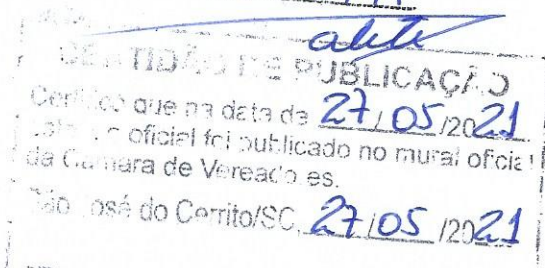 CERTIDÃO DE PUBLICAÇÃO
Certifico que na data de 27/05/2021
ato oficial foi publicado no mural oficial
da Câmara de Vereadores.
São José do Cerrito/SC, 27/05/2021